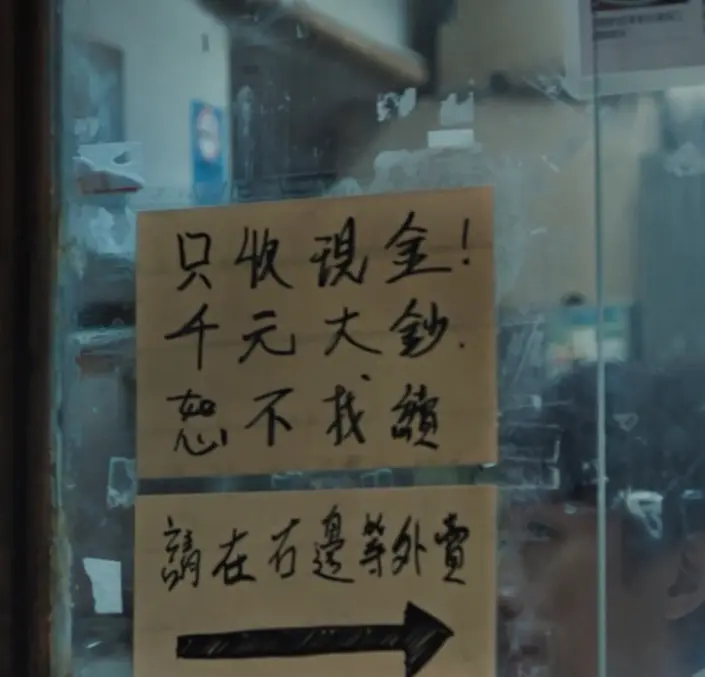 只收現金!
千元大鈔.
恕不找續
請在右邊等外賣